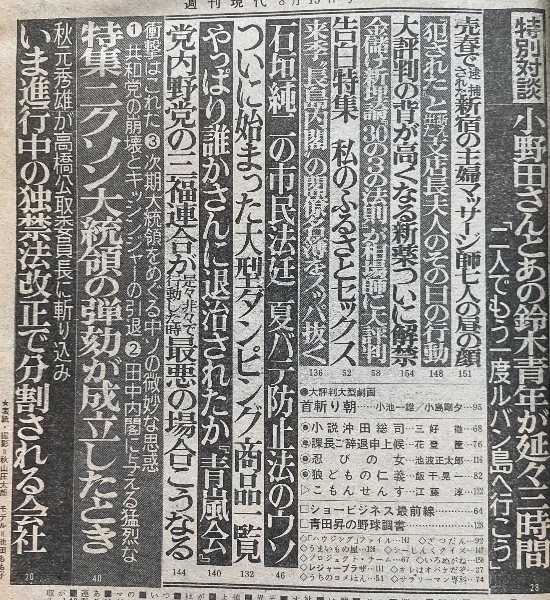 週刊現代 8月15日号
特別対談 小野田さんとあの鈴木青年が延々三時間
「二人でもう一度ルバン島へ行こう」
28
売春で逮捕された新宿の主婦マッサージ師七人の昼の顔
151
支店長夫人のその日の行動
148
大評判の背が高くなる新薬ついに解禁
164
金儲け新理論「30の3の法則」が相場師に大評判
58
告白特集 私のふるさとセックス
52
来季“長島内閣”の閣僚名簿をスッパ抜く
136
石垣純二の市民法廷 夏バテ防止法のウソ
46
ついに始まった大型ダンピング商品一覧
132
やっぱり誰かさんに退治されたか「青嵐会」
140
党内野党の三福連合が是々非々で行動した時最悪の場合こうなる
144
特集 ニクソン大統領の弾劾が成立したとき
衝撃はこれだ ③次期大統領をめぐる中ソの微妙な思惑
①共和党の崩壊とキッシンジャーの引退 ②田中内閣に与える猛烈な
40
秋元秀雄が高橋公取委員長に斬り込み
いま進行中の独禁法改正で分割される会社
20
●大評判大型劇画
首斬り朝……小池一雄/小島剛夕・95
小説 沖田総司 三好徹・68
課長ご辞退申上候 花登筐・76
忍びの女 池波正太郎・116
狼どもの仁義 飯干晃一・82
こもんせんす 江藤淳・122
□ショービジネス最前線・64
□青田昇の野球調書・128
◇「ハウジング」ファイル・142
◇うまいもの屋・126
◇プロジェクト・チーム・67
◇レジャープラザ・111
◇うちのヨメはん・51
◇サラリーマン専科・74
★表紙・撮影=秋山庄太郎